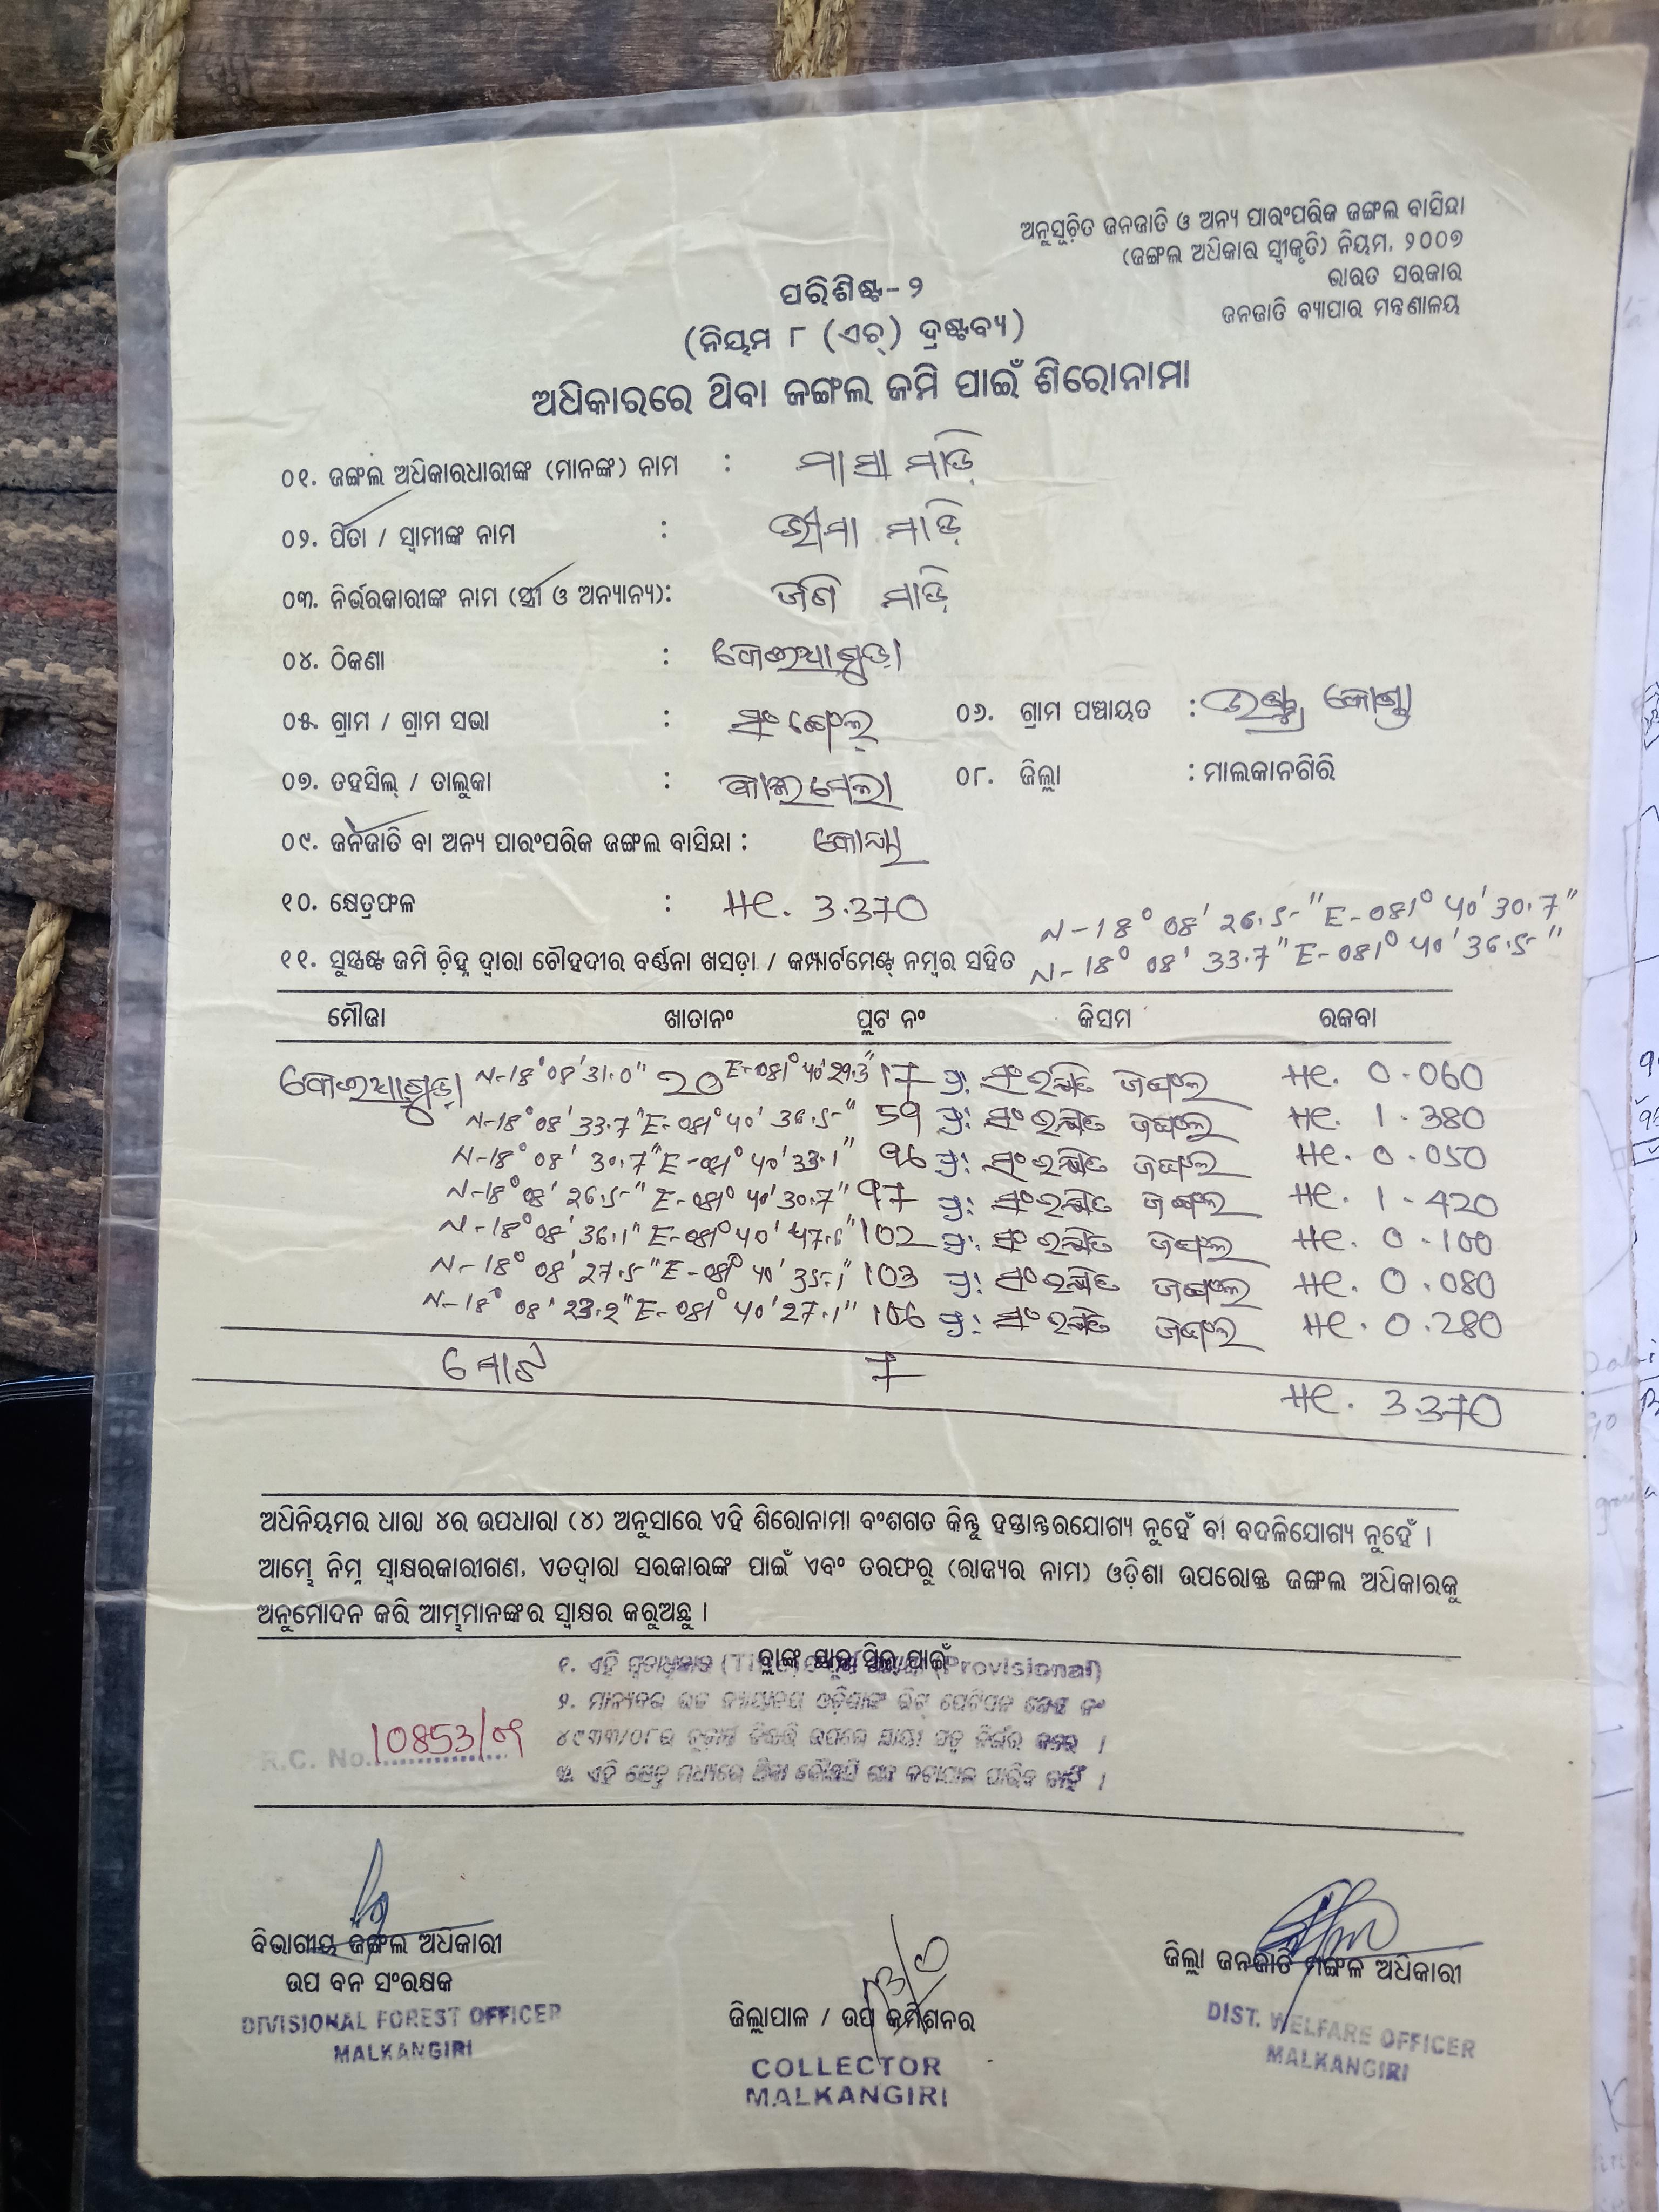 ଅନୁସୂଚିତ ଜନଜାତି ଓ ଅନ୍ୟ ପାରଂପରିକ ଜଙ୍ଗଲ ବାସିନ୍ଦା
(ଜଙ୍ଗଲ ଅଧିକାର ସ୍ୱୀକୃତି) ନିୟମ, ୨୦୦୭
ଭାରତ ସରକାର
ଜନଜାତି ବ୍ୟାପାର ମନ୍ତ୍ରଣାଳୟ
ପରିଶିଷ୍ଟ-୨
(ନିୟମ ୮ (ଏଚ୍) ଦ୍ରଷ୍ଟବ୍ୟ)
ଅଧିକାରରେ ଥିବା ଜଙ୍ଗଲ ଜମି ପାଇଁ ଶିରୋନାମା
୦୧. ଜଙ୍ଗଲ ଅଧିକାରଧାରୀଙ୍କ (ମାନଙ୍କ) ନାମ : ମାସା ମାଡ଼ି
୦୨. ପିତା / ସ୍ୱାମୀଙ୍କ ନାମ : ଭୀମା ମାଡ଼ି
୦୩. ନିର୍ଭରକାରୀଙ୍କ ନାମ (ସ୍ତ୍ରୀ ଓ ଅନ୍ୟାନ୍ୟ): ଜିଣି ମାଡ଼ି
୦୪. ଠିକଣା :
୦୫. ଗ୍ରାମ / ଗ୍ରାମ ସଭା : ୦୬. ଗ୍ରାମ ପଞ୍ଚାୟତ :
୦୭. ତହସିଲ୍ / ତାଲୁକା : ୦୮. ଜିଲ୍ଲା : ମାଲକାନଗିରି
୦୯. ଜନଜାତି ବା ଅନ୍ୟ ପାରଂପରିକ ଜଙ୍ଗଲ ବାସିନ୍ଦା : କୋୟା
୧୦. କ୍ଷେତ୍ରଫଳ : He. 3.370
N-18° 08' 26.5" E-081° 40' 30.7"
୧୧. ସୁସ୍ପଷ୍ଟ ଜମି ଚିହ୍ନ ଦ୍ୱାରା ଚୌହଦୀର ବର୍ଣ୍ଣନା ଖସଡ଼ା / କମ୍ପାର୍ଟମେଣ୍ଟ୍ ନମ୍ବର ସହିତ N-18° 08' 33.7" E-081° 40' 36.5"
ମୌଜା ଖାତାନଂ ପ୍ଲଟ ନଂ କିସମ ରକବା
N-18° 08' 31.0" 20 E-081° 40' 29.3" 17 ପ୍ର: ସଂରକ୍ଷିତ ଜଙ୍ଗଲ He. 0.060
N-18° 08' 33.7" E-081° 40' 36.5" 59 ପ୍ର: ସଂରକ୍ଷିତ ଜଙ୍ଗଲ He. 1.380
N-18° 08' 30.7" E-081° 40' 33.1" 96 ପ୍ର: ସଂରକ୍ଷିତ ଜଙ୍ଗଲ He. 0.050
N-18° 08' 26.5" E-081° 40' 30.7" 97 ପ୍ର: ସଂରକ୍ଷିତ ଜଙ୍ଗଲ He. 1.420
N-18° 08' 36.1" E-081° 40' 102 ପ୍ର: ସଂରକ୍ଷିତ ଜଙ୍ଗଲ He. 0.100
N-18° 08' 27.5" E-081° 40' 35.1" 103 ପ୍ର: ସଂରକ୍ଷିତ ଜଙ୍ଗଲ He. 0.080
N-18° 08' 23.2" E-081° 40' 27.1" 106 ପ୍ର: ସଂରକ୍ଷିତ ଜଙ୍ଗଲ He. 0.280
ମୋଟ 7 He. 3.370
ଅଧିନିୟମର ଧାରା ୪ର ଉପଧାରା (୪) ଅନୁସାରେ ଏହି ଶିରୋନାମା ବଂଶଗତ କିନ୍ତୁ ହସ୍ତାନ୍ତରଯୋଗ୍ୟ ନୁହେଁ ବା ବଦଳିଯୋଗ୍ୟ ନୁହେଁ ।
ଆମ୍ଭେ ନିମ୍ନ ସ୍ୱାକ୍ଷରକାରୀଗଣ, ଏତଦ୍ୱାରା ସରକାରଙ୍କ ପାଇଁ ଏବଂ ତରଫରୁ (ରାଜ୍ୟର ନାମ) ଓଡ଼ିଶା ଉପରୋକ୍ତ ଜଙ୍ଗଲ ଅଧିକାରକୁ
ଅନୁମୋଦନ କରି ଆମ୍ଭମାନଙ୍କର ସ୍ୱାକ୍ଷର କରୁଅଛୁ ।
୧. ଏହି (Provisional)
୨. ମାନ୍ୟବର ଓଡ଼ିଶାଙ୍କ ରିଟ୍ ପେଟିସନ କେସ୍ ନଂ
୪୯୩୩/୦୮ର
R.C. No. 10853/09
୩. ଏହି କ୍ଷେତ୍ର ମଧ୍ୟରେ ଥିବା କୌଣସି ଗଛ କଟାଯାଇ ପାରିବ ନାହିଁ ।
ବିଭାଗୀୟ ଜଙ୍ଗଲ ଅଧିକାରୀ
ଉପ ବନ ସଂରକ୍ଷକ
DIVISIONAL FOREST OFFICER
MALKANGIRI
ଜିଲ୍ଲାପାଳ / ଉପ କମିଶନର
COLLECTOR
MALKANGIRI
ଜିଲ୍ଲା ଜନଜାତି ମଙ୍ଗଳ ଅଧିକାରୀ
DIST. WELFARE OFFICER
MALKANGIRI